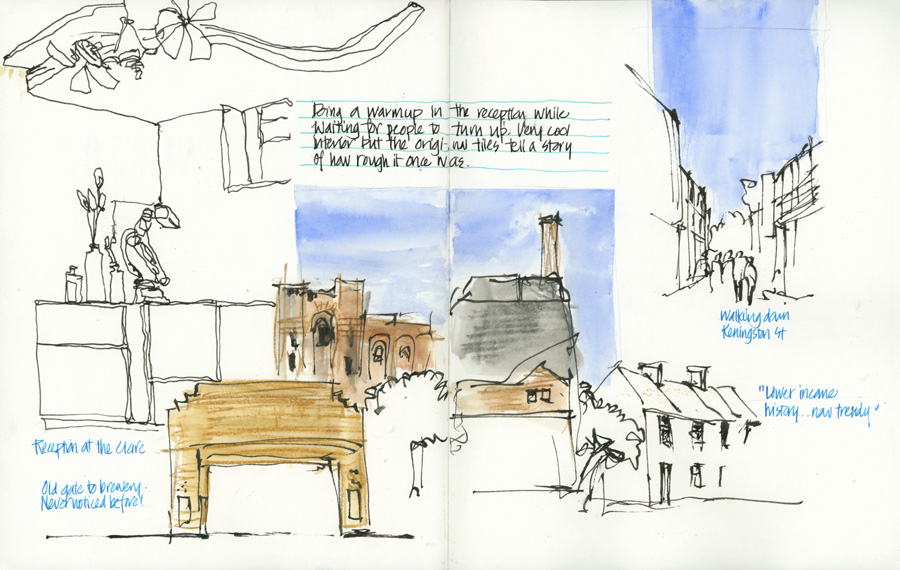 Doing a warmup in the reception while
waiting for people to turn up. Very cool
interior but the original tiles tell a story
of how rough it once was.
Walking down
Kensington St
"Lower income
history... now trendy"
Reception at the Clare
Old gate to brewery.
Never noticed before!